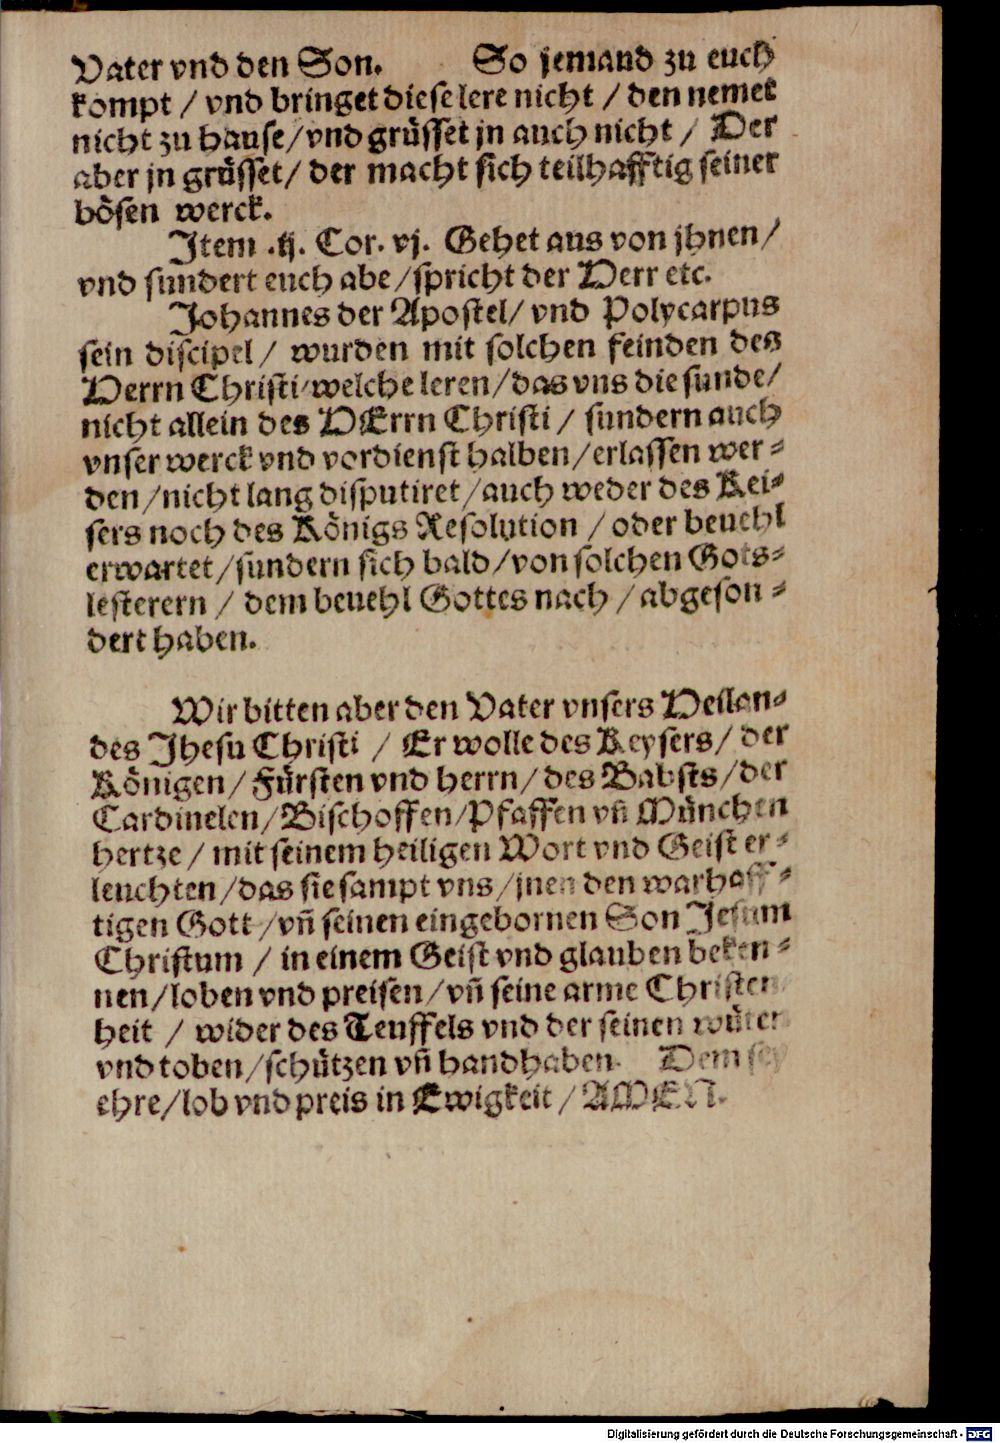 Vater vnd den Son. So jemand zu euch
kompt / vnd bringet diese lere nicht / den nemet
nicht zu hause/vnd grüsset jn auch nicht / Der
aber jn grüsset/ der macht sich teilhafftig seiner
bösen werck.
Item .ij. Cor. vj. Gehet aus von jhnen/
vnd sundert euch abe/spricht der Herr etc.
Johannes der Apostel/ vnd Polycarpus
sein discipel/ wurden mit solchen feinden des
Herrn Christi/welche leren/das vns die sunde/
nicht allein des HErrn Christi / sundern auch
vnser werck vnd vordienst halben/erlassen wer-
den/nicht lang disputiret/auch weder des Kei-
sers noch des Königs Resolution / oder beuehl
erwartet/sundern sich bald/von solchen Gots-
lesterern / dem beuehl Gottes nach / abgeson-
dert haben.
Wir bitten aber den Vater vnsers Heilan-
des Jhesu Christi / Er wolle des Keysers/ der
Königen/ Fürsten vnd herrn/des Babsts/der
Cardinelen/Bischoffen/Pfaffen vñ München
hertze/ mit seinem heiligen Wort vnd Geist er-
leuchten/das sie sampt vns/jnen den warhaff-
tigen Gott/vñ seinen eingebornen Son Jesum
Christum / in einem Geist vnd glauben beken-
nen/loben vnd preisen/vñ seine arme Christen
heit / wider des Teuffels vnd der seinen wüten
vnd toben/schützen vñ handhaben. Dem sey
ehre/lob vnd preis in Ewigkeit / AMEN.
Digitalisierung gefördert durch die Deutsche Forschungsgemeinschaft - DFG